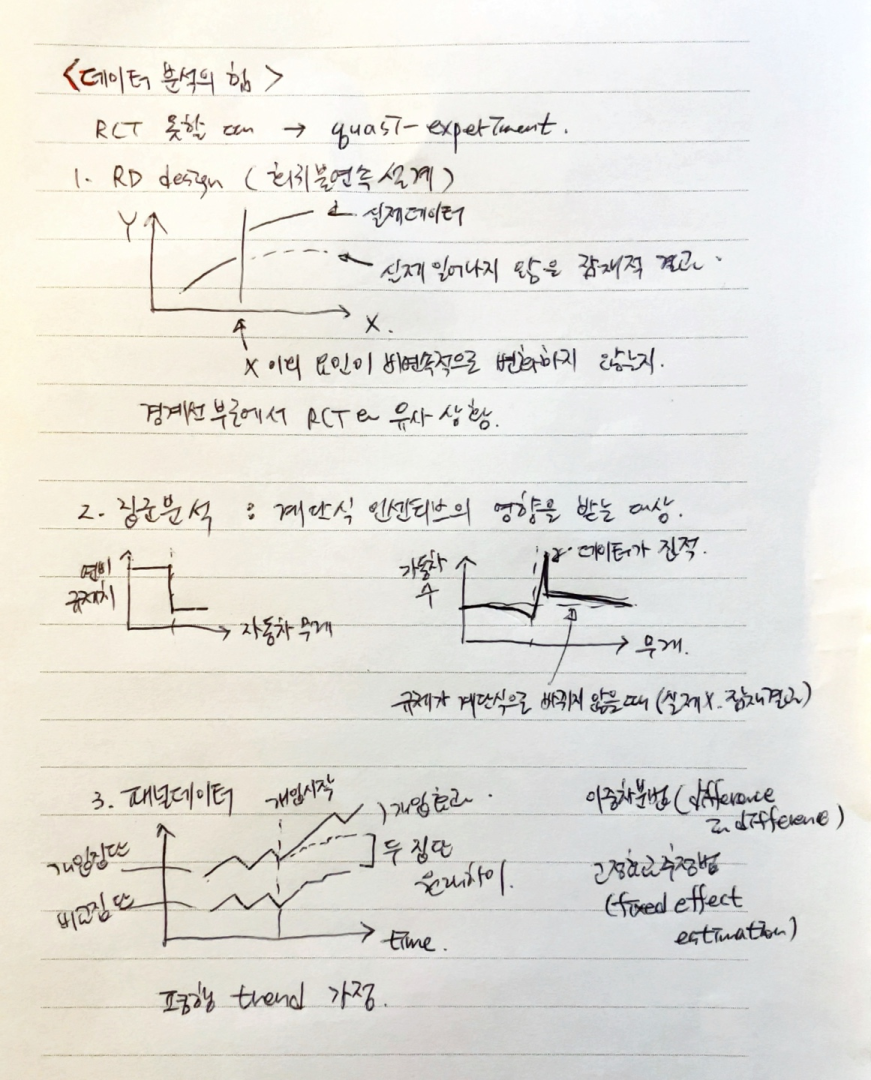 <데이터 분석의 힘>
RCT 못할 때 → quasi-experiment.
1. RD design (회귀불연속 설계)
Y
실제데이터
실제 일어나지 않은 잠재적 결과.
X.
X 이외 요인이 비연속적으로 변화하지 않는지.
경계선 부근에서 RCT와 유사 상황.
2. 집군분석 : 계단식 인센티브의 영향을 받는 대상.
연비
규제치
자동차 무게
자동차
수
데이터가 진적.
무게.
규제가 계단식으로 바뀌지 않을 때 (실제X. 잠재결과)
3. 패널데이터
개입시작
개입효과.
개입집단
비교집단
두 집단
원래차이.
time.
이중차분법 (difference
in difference)
고정효과추정법
(fixed effect
estimation)
평행 trend 가정.